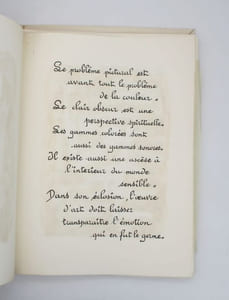 Le problème pictural est
avant tout le problème
de la couleur.
Le clair obscur est une
perspective spirituelle.
Les gammes colorées sont
aussi des gammes sonores.
Il existe aussi une ascèse à
l'intérieur du monde
sensible.
Dans son éclosion, l'œuvre
d'art doit laisser
transparaître l'émotion
qui en fut le germe.